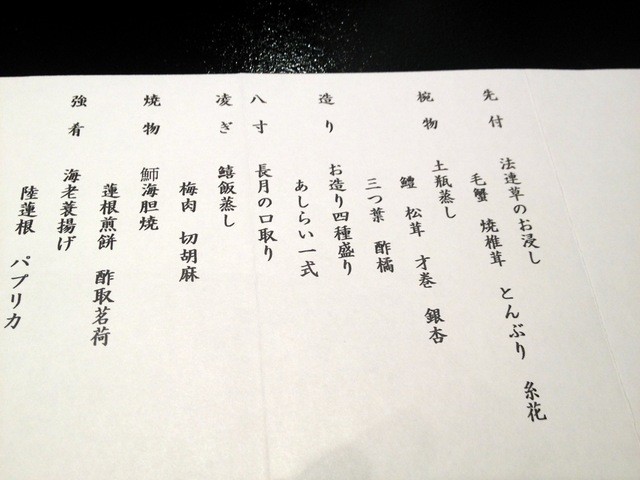 先付
法連草のお浸し
毛蟹 焼椎茸 とんぶり 糸花
椀物
土瓶蒸し
鱧 松茸 才巻 銀杏
三つ葉 酢橘
造り
お造り四種盛り
あしらい一式
八寸
長月の口取り
凌ぎ
鱚飯蒸し
梅肉 切胡麻
焼物
鰤海胆焼
蓮根煎餅 酢取茗荷
強肴
海老蓑揚げ
陸蓮根 パプリカ